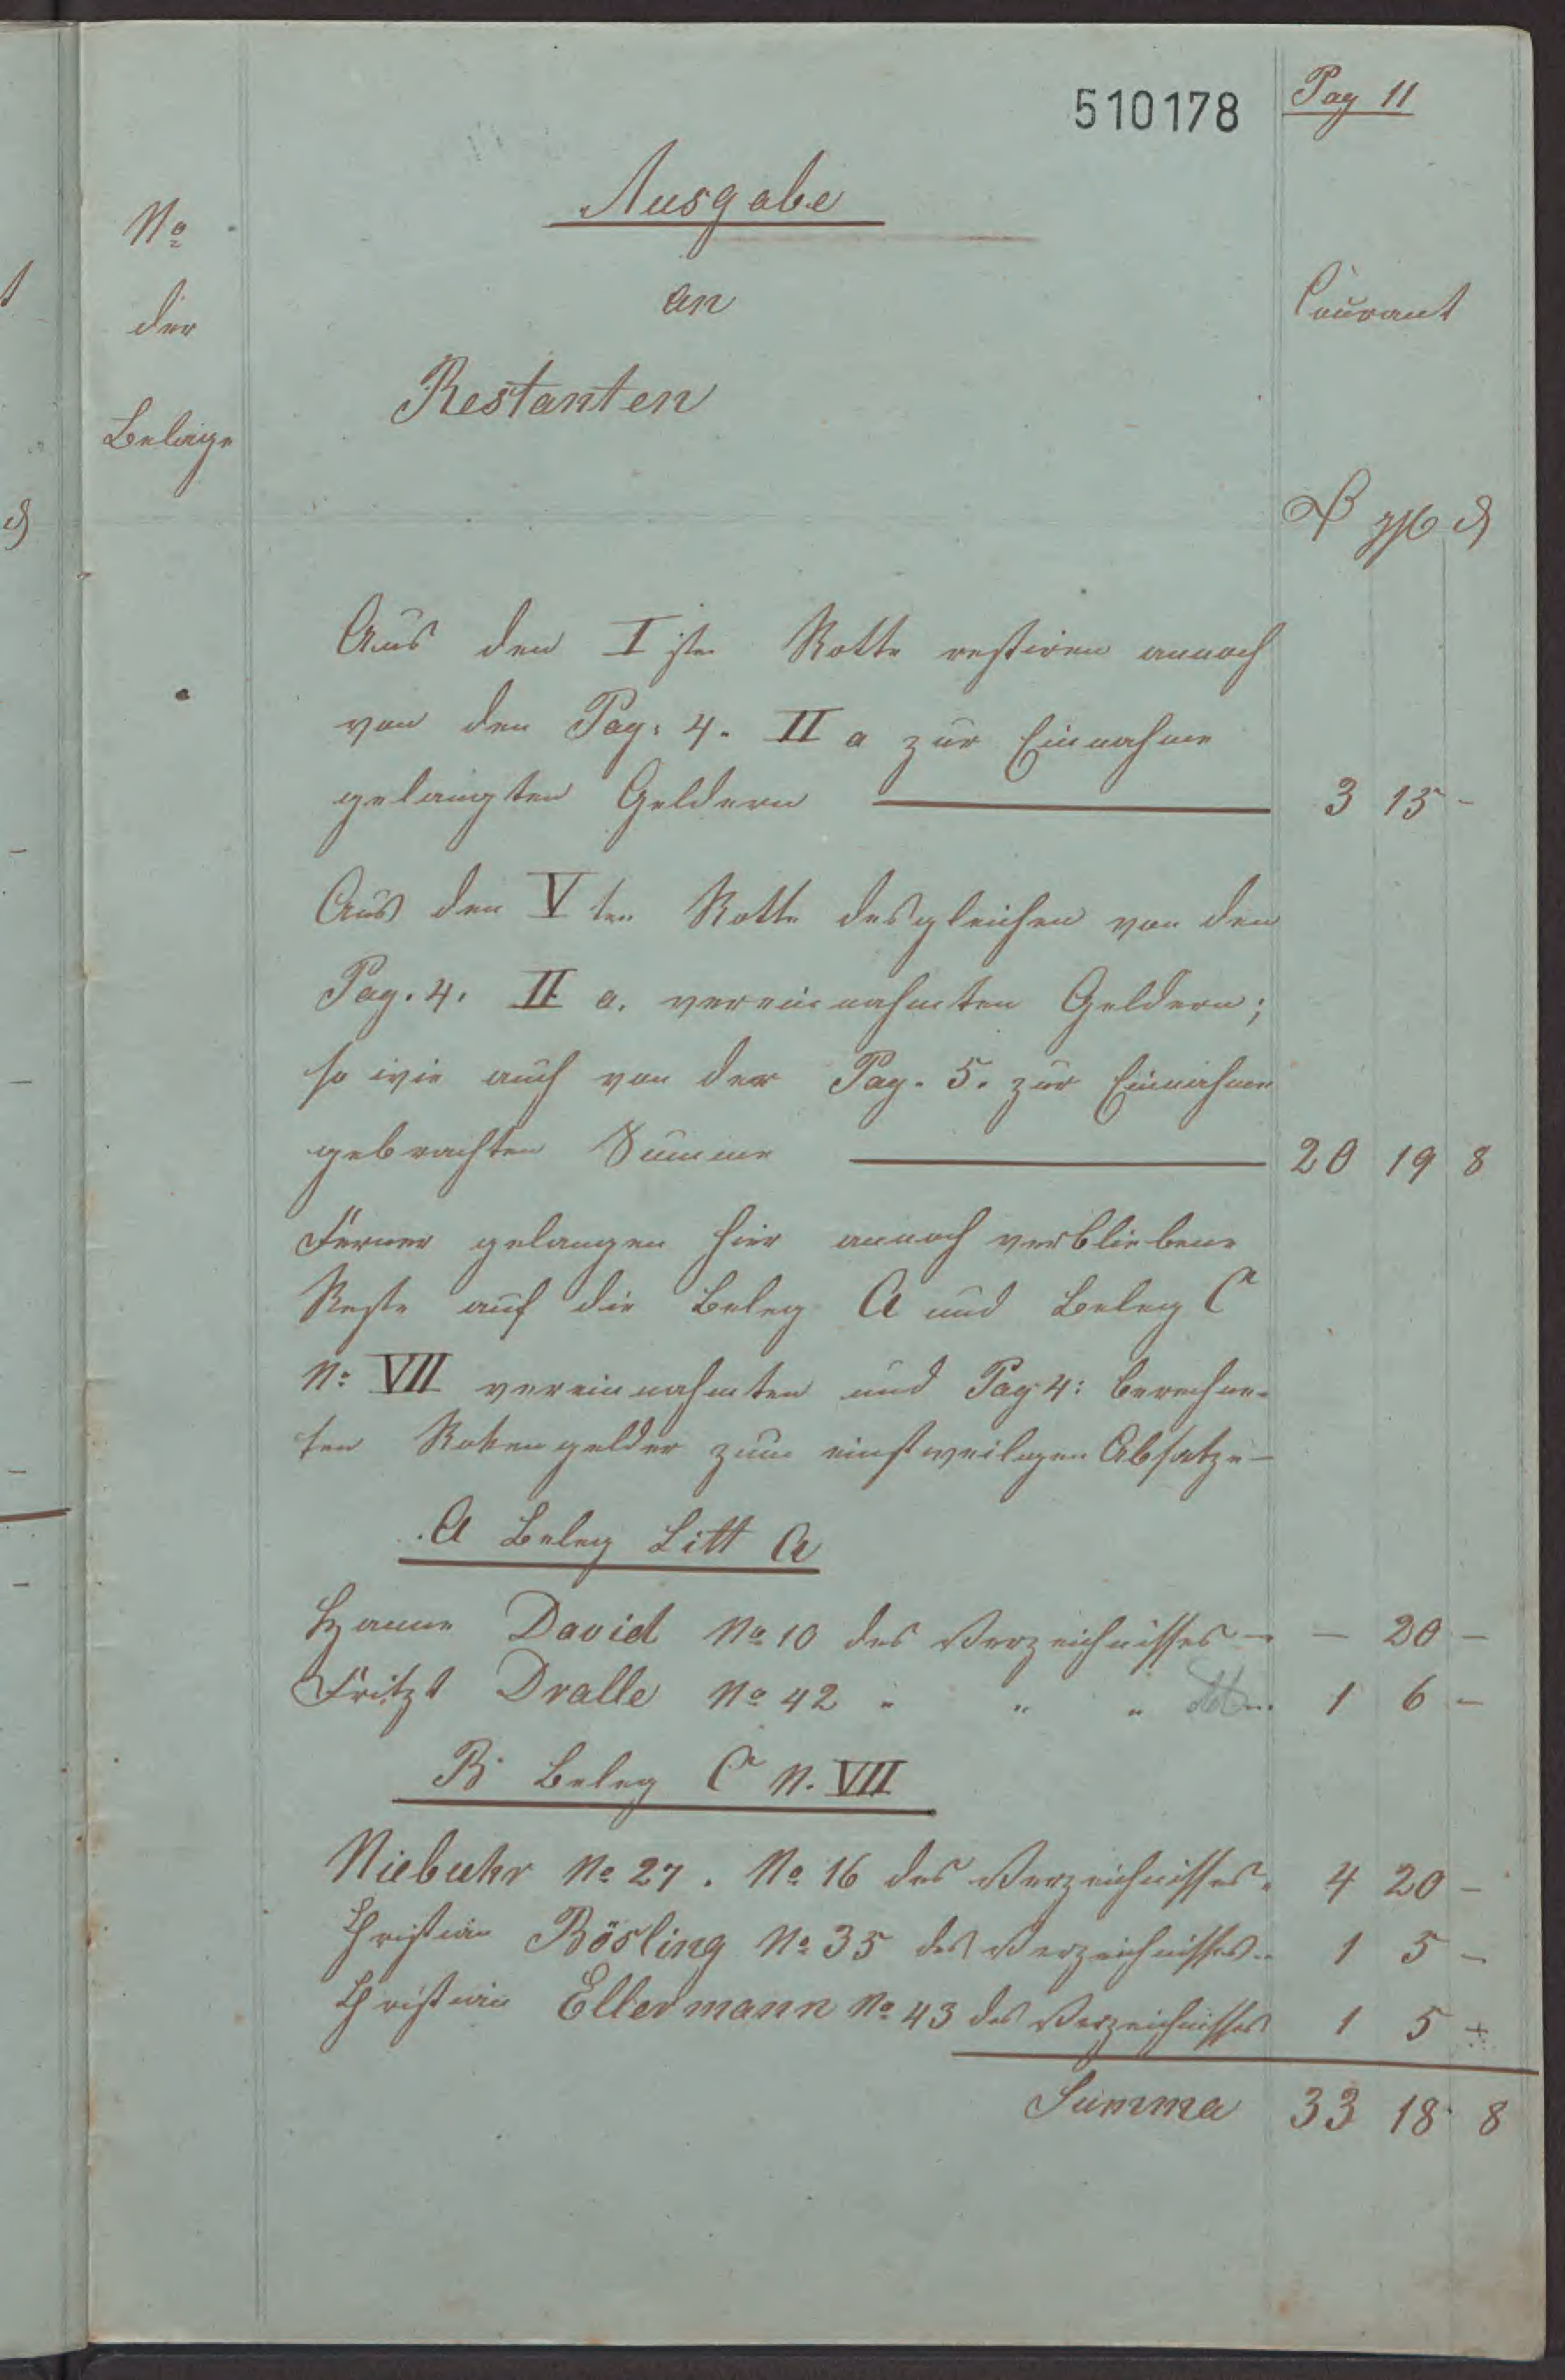 510178
Pag 11
Ausgabe
No
der
Belege
an
Courant
Restanten
₰
Aus den I ste Rotte restiren annoch
von den Pag: 4. II a zur Einnahme
gelangten Geldern 3 15 -
Aus den V ten Rotte desgleichen von den
Pag. 4. II a. vereinnahmten Geldern;
so wie auch von der Pag. 5. zur Einnahme
gebrachten Summe 20 19 8
Ferner gelangen hier annoch verbliebene
Reste auf die Beleg A und Beleg C
No: VII vereinnahmten und Pag 4: berechne-
ten Rottengelder zum einstweiligen Absatze -
A Beleg Litt A
Hanne David No 10 des Verzeichnisses - - 20 -
Fritzt Dralle No 42 " " " 1 6 -
B Beleg C N. VII
Niebuhr No 27. No 16 des Verzeichnisses. 4 20 -
Christian Bösling No 35 des Verzeichnisses 1 5 -
Christian Ellermann No 43 des Verzeichnisses 1 5 -
Summa 33 18 8